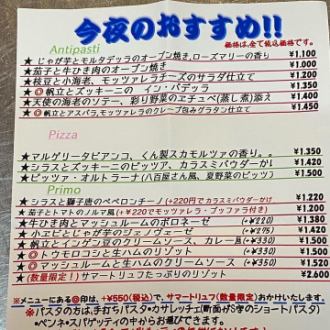 今夜のおすすめ!!
価格は、全て税込価格です。
Antipasti
★じゃが芋とモルタデッラのオーブン焼き,ローズマリーの香り ¥1.100
★茄子と牛ひき肉のオーブン焼き ¥1.000
★枝豆と小海老、モッツァレラチーズのサラダ仕立て ¥1.200
★◎帆立とズッキーニの イン・パデッラ ¥1.350
★天使の海老のソテー、彩り野菜のエチュベ(蒸し煮)添え ¥1.400
★◎帆立とアスパラ,モッツァレラのクレープ包みグラタン仕立て ¥1.600
Pizza
★マルゲリータビアンコ、くん製スカモルツァの香り。 ¥1.350
★シラスとズッキーニのピッツァ、カラスミパウダーがけ ¥1.420
★ピッツァ・オルトラーナ(八百屋さん風、夏野菜のピッツァ) ¥1.500
Primo
★シラスと獅子唐のペペロンチーノ(+220円でカラスミパウダーがけ ¥1.220
★茄子とトマトのノルマ風(+¥220でモッツァレラ・ブッファラ付き) ¥1.200
★牛ひき肉とマッシュルームのボロネーゼ ¥1.380
★小エビとじゃが芋のジェノベーゼ ¥1.420
★帆立とインゲン豆のクリームソース、カレー風 ¥1.500
★◎トウモロコシと生ハムのリゾット ¥1.500
★◎マッシュルームと生ハムのクリームソース ¥1.500
★(数量限定!)サマートリュフたっぷりのリゾット ¥2.600
※メニューにある◎印は、+¥550(税込)で、サマートリュフ(数量限定)おかけいたします。
※パスタの方は、手打ちパスタ・カサレッチェ(断面がS字のショートパスタ)
・ペンネ・スパゲッティの中からお選びできます。